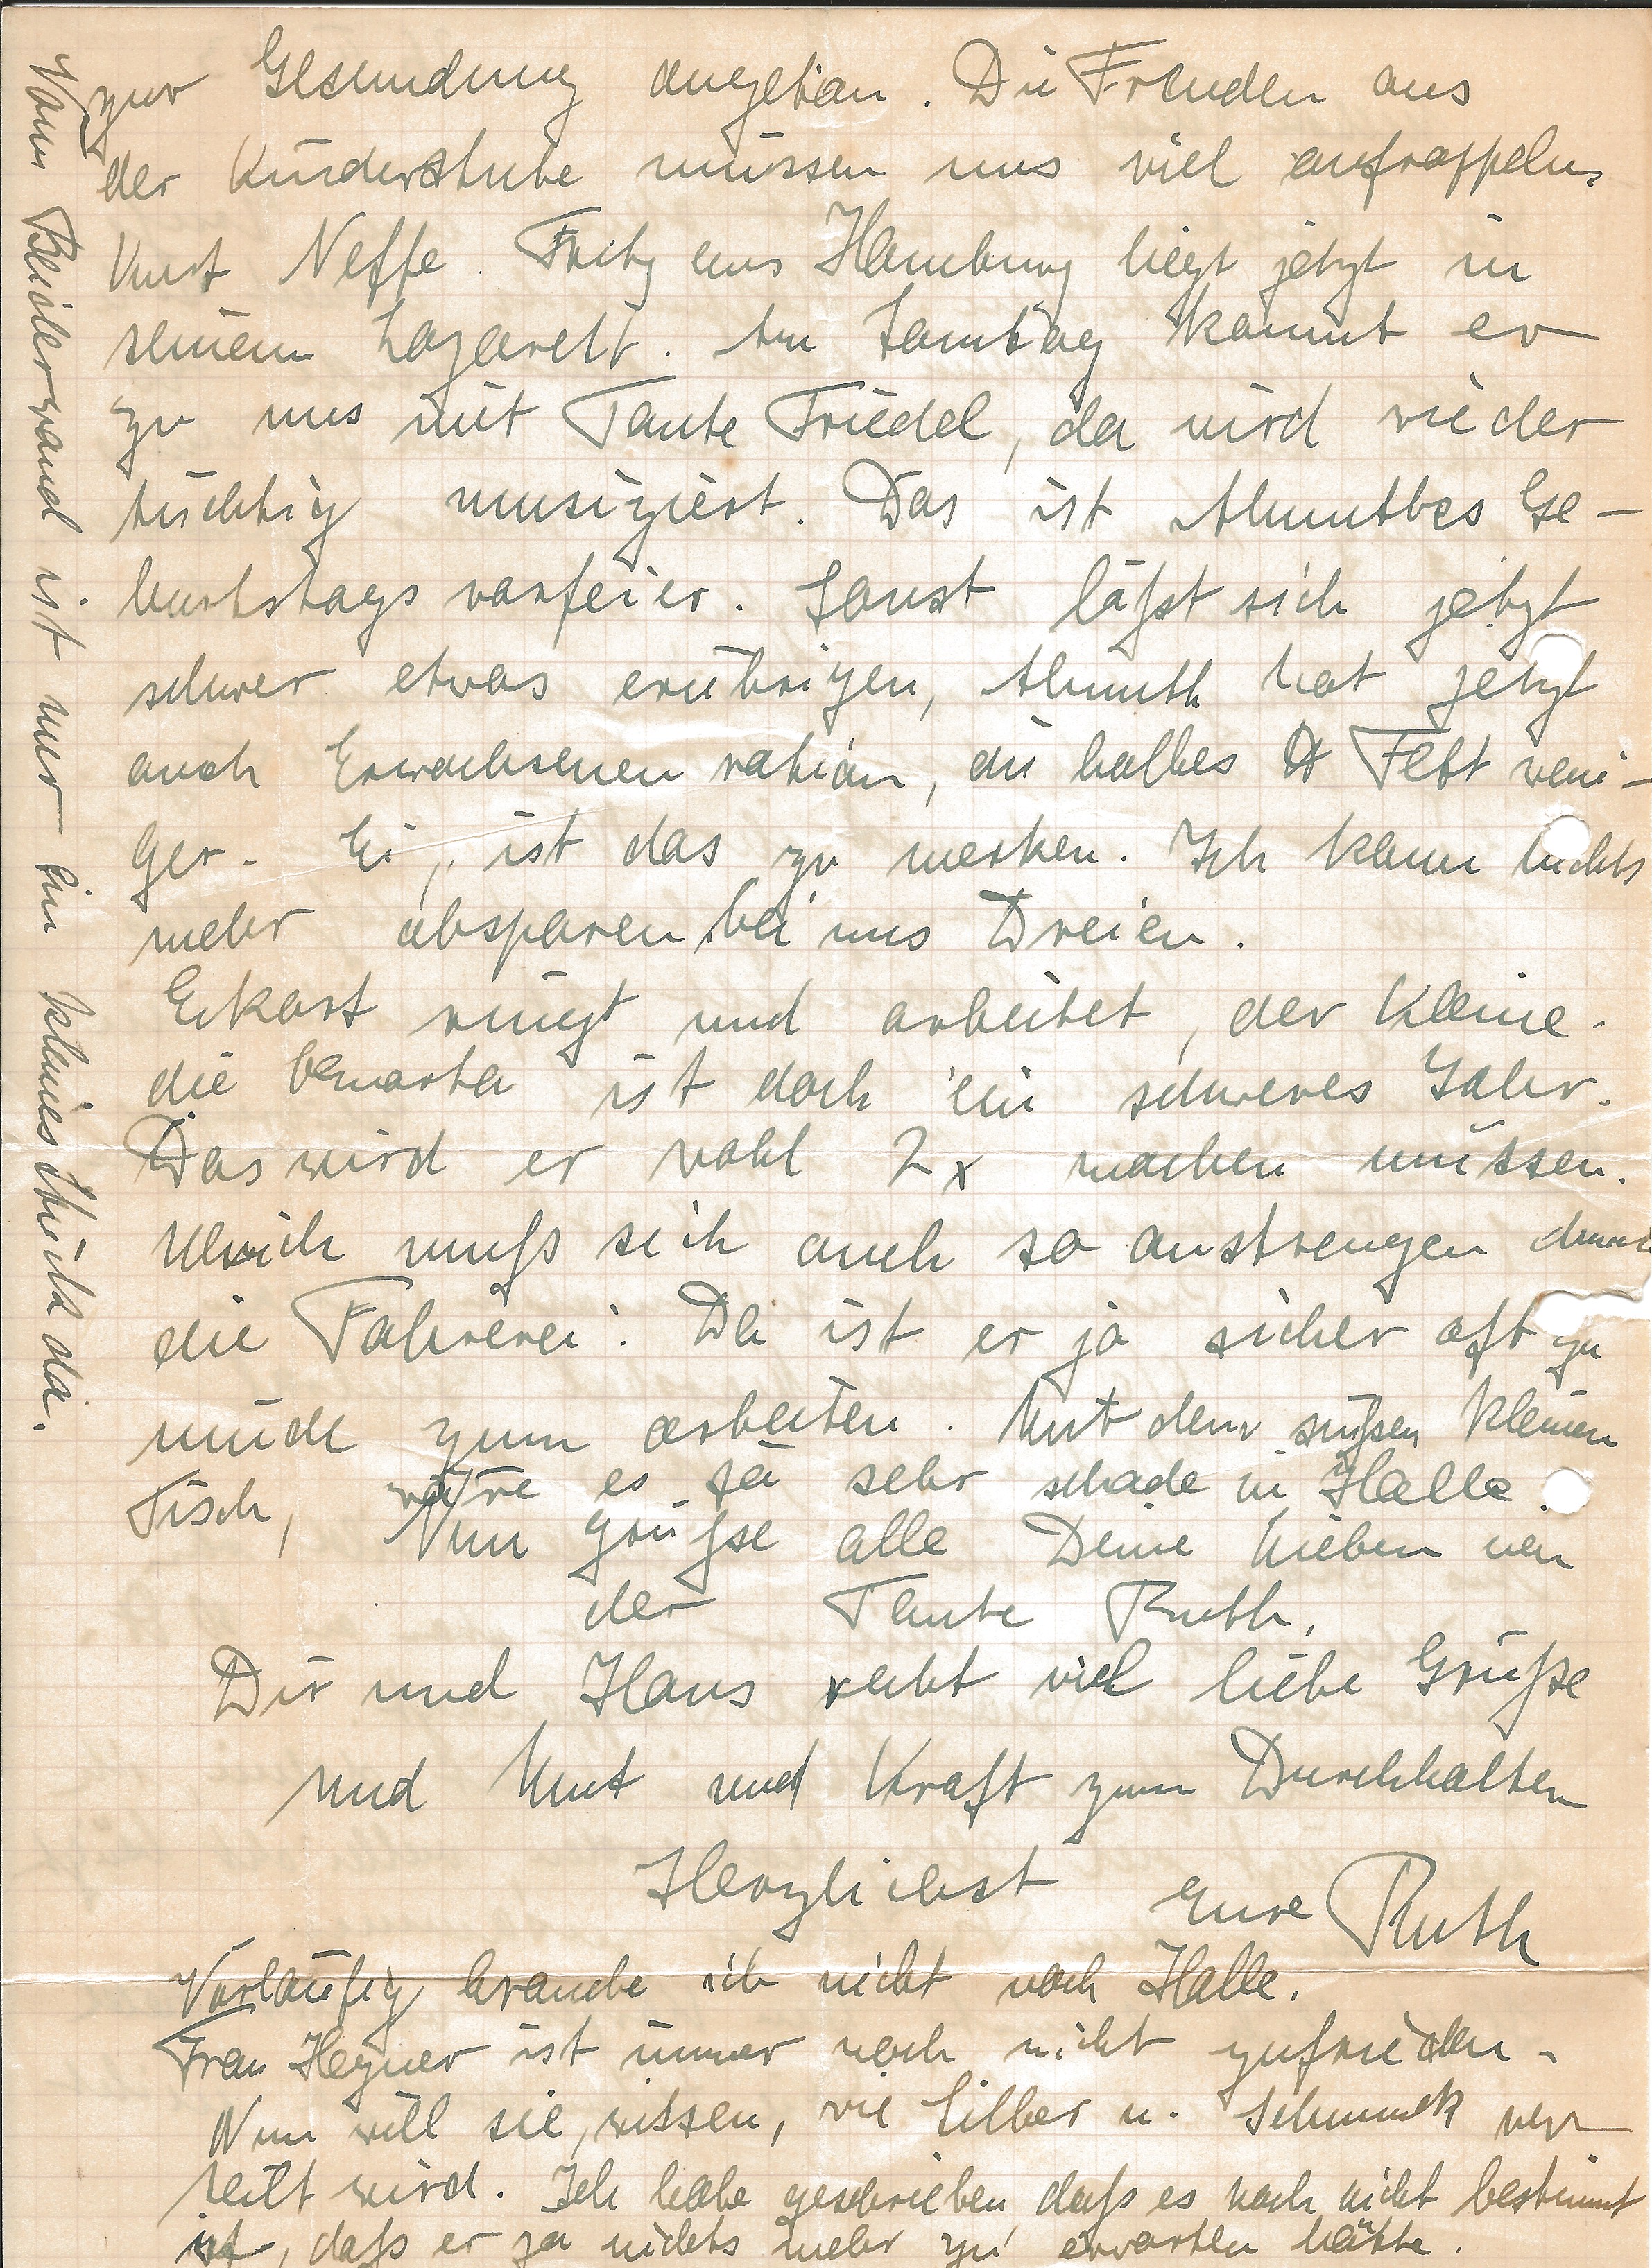 zur Gesundung angetan. Die Freuden aus
der Kinderstube müssen uns viel aufrappeln.
Kurt Neffe Fritz aus Hamburg liegt jetzt in
seinem Lazarett. Am Sonntag kommt er
zu uns mit Tante Friedel, da wird wieder
tüchtig musiziert. Das ist Almuthes Ge-
burtstagsvorfeier. Sonst läßt sich jetzt
schwer etwas erübrigen, Almuth hat jetzt
auch Erwachsenenration, ein halbes ℔ Fett weni-
ger. Ei, ist das zu merken. Ich kann nichts
mehr absparen bei uns Dreien.
Eckart ringt und arbeitet, der Kleine.
die ist doch ein schweres Jahr.
Das wird er wohl 2x machen müssen.
Ulrich muß sich auch so anstrengen durch
die Fahrerei. Da ist er ja sicher oft zu
müde zum arbeiten. Mit dem süßen kleinen
Tisch, wäre es ja sehr schade in Halle.
Nun grüße alle Deine Lieben von
der Tante Ruth.
Dir und Hans recht viel liebe Grüße
und Mut und Kraft zum Durchhalten
Herzlichst Eure Ruth
Vorläufig brauche ich nicht nach Halle.
Frau ist immer noch nicht zufrieden.
Nun will sie wissen, wie Silber u. Schmuck ver
teilt wird. Ich habe geschrieben daß es noch nicht bestimmt
ist, daß er ja nichts mehr zu erwarten hätte.
Vom Beiderwand ist nur ein kleines Stück da.